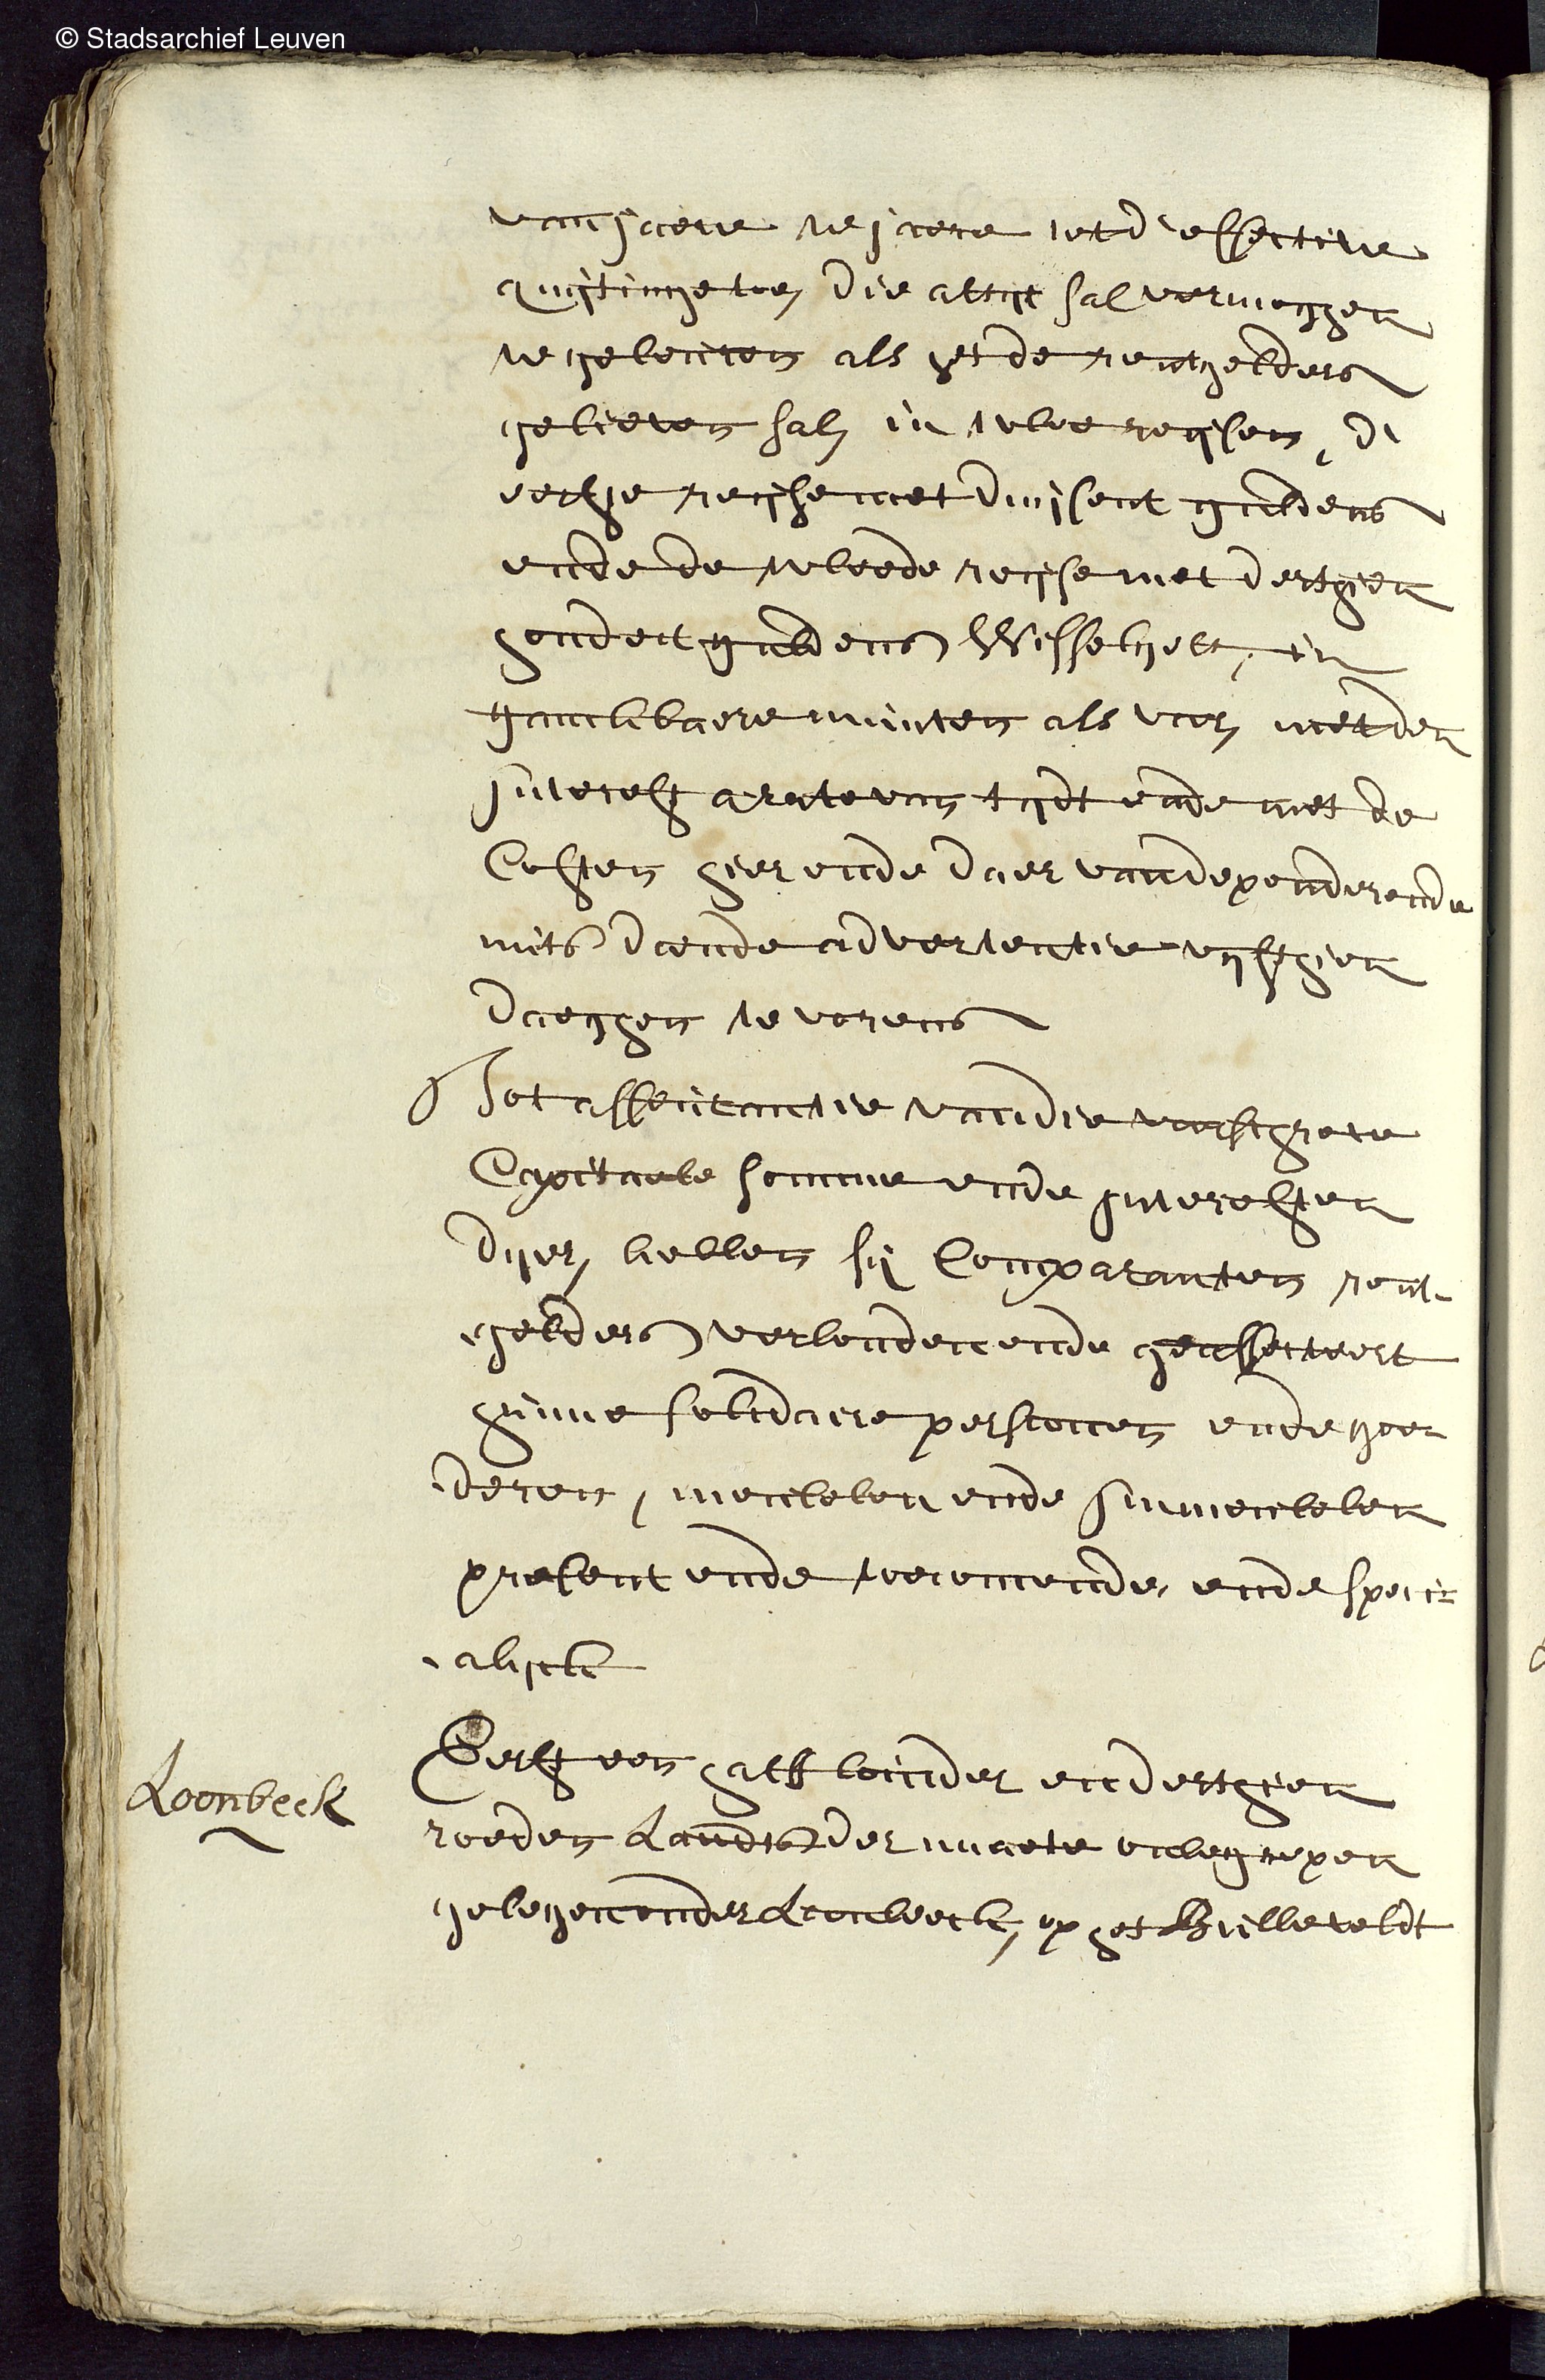 © Stadsarchief Leuven
van jaere te jaere tot d'effective
quytinge toe, die altyt sal vermogen
te gebeuren als het de rentgelders
gelieven sal, in twee reysen, d'
ierste reyse met duysent guldens
ende de tweede reyse met derthien
hondert guldens Wisselgelt, in
ganckbaere munten als voor, met den
interest a rate van tydt ende met de
Costen hier ende daer van dependerende
mits doende advertentie vyfthien
daeghen te vorens
Tot asseurantie van die voorschreve
Capitaele somme ende interesten
dyer, hebben sy Comparanten rent-
gelders verbonden ende geaffecteert
hunne solidaire persoonen ende goe-
deren, meubelen ende immeubelen
present ende toecomende, ende speci=
alyck
Loonbeeck
Ierst een halff bunder en derthien
roeden Landts der maete onbegrepen
gelegen onder Loonbeeck, op het Bulleveldt